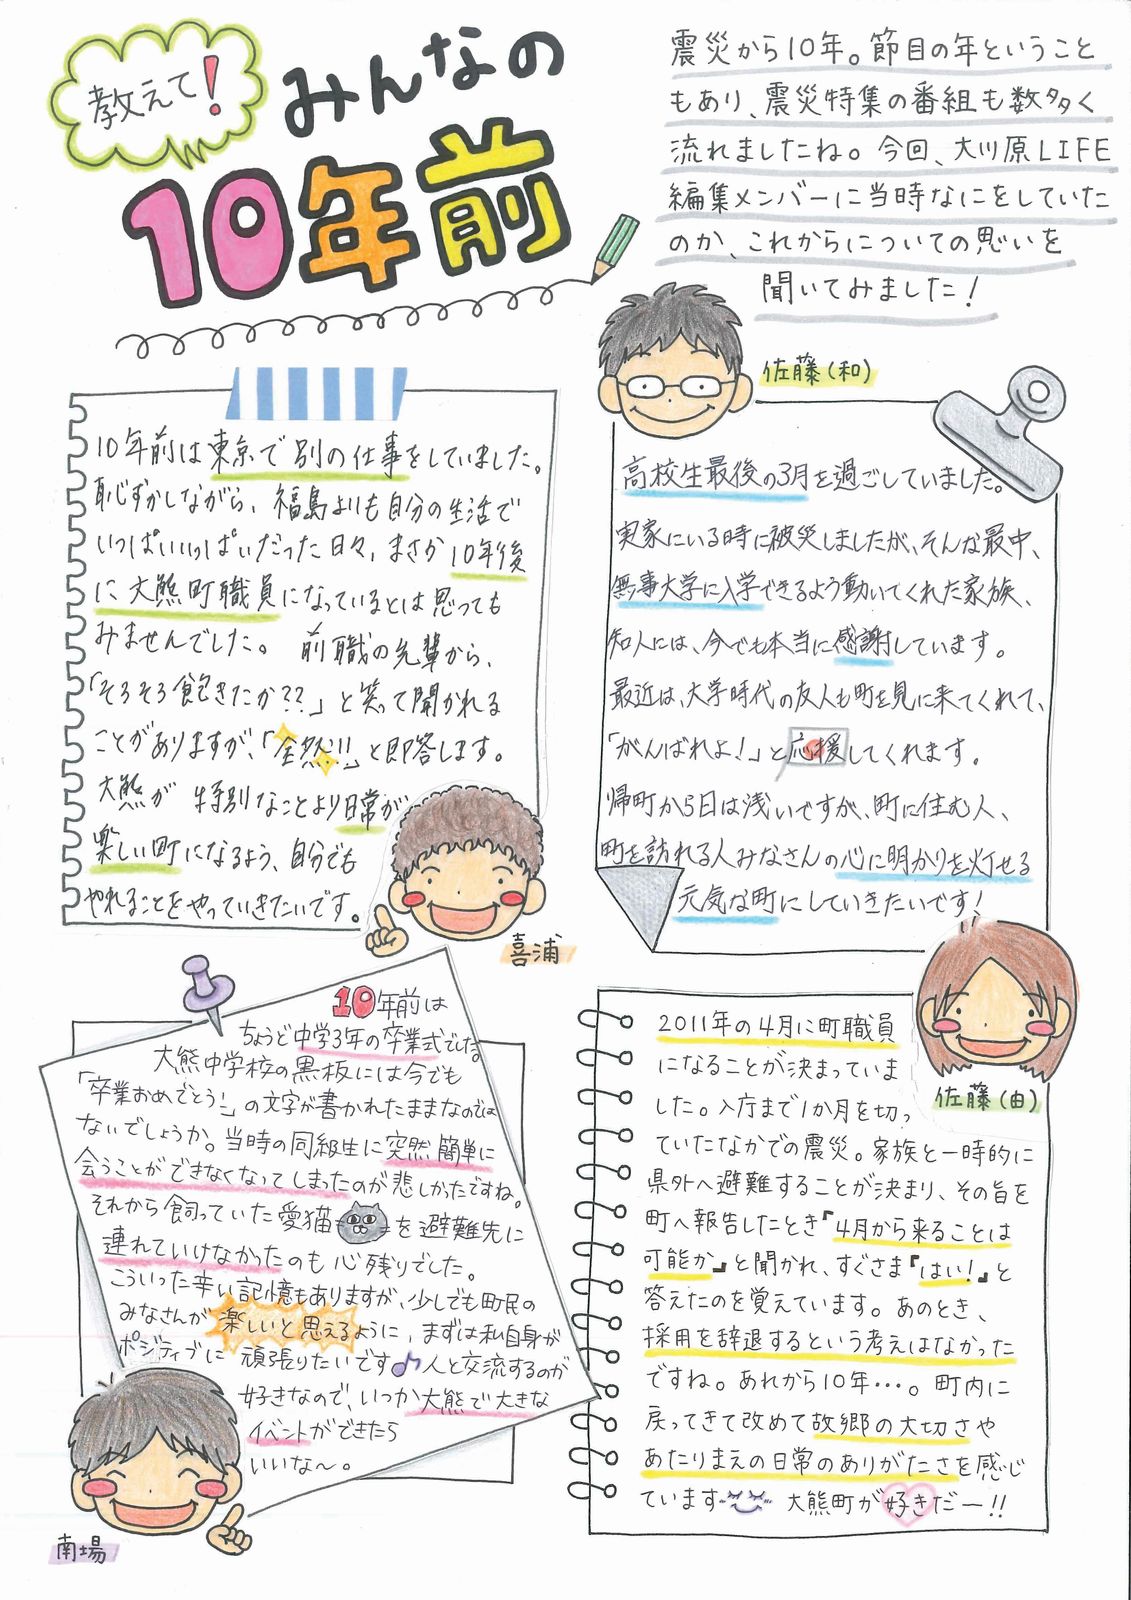 教えて!
みんなの
10年前
震災から10年。節目の年ということ
もあり、震災特集の番組も数多く
流れましたね。今回、大川原LIFE
編集メンバーに当時なにをしていた
のか、これからについての思いを
聞いてみました!
10年前は東京で別の仕事をしていました。
恥ずかしながら、福島よりも自分の生活で
いっぱいいっぱいだった日々。まさか10年後
に大熊町職員になっているとは思っても
みませんでした。 前職の先輩から、
「そろそろ飽きたか??」と笑って聞かれる
ことがありますが、「全然!!」と即答します。
大熊が 特別なことより日常が
楽しい町になるよう、自分でも
やれることをやっていきたいです。
喜浦
佐藤(和)
高校生最後の3月を過ごしていました。
実家にいる時に被災しましたが、そんな最中、
無事大学に入学できるよう動いてくれた家族、
知人には、今でも本当に感謝しています。
最近は、大学時代の友人も町を見に来てくれて、
「がんばれよ!」と応援してくれます。
帰町から日は浅いですが、町に住む人、
町を訪れる人みなさんの心に明かりを灯せる
元気な町にしていきたいです!
10年前は
ちょうど中学3年の卒業式でした。
大熊中学校の黒板には今でも
「卒業おめでとう!」の文字が書かれたままなのでは
ないでしょうか。当時の同級生に突然簡単に
会うことができなくなってしまったのが悲しかったですね。
それから飼っていた愛猫を避難先に
連れていけなかったのも心残りでした。
こういった辛い記憶もありますが、少しでも町民の
みなさんが楽しいと思えるように、まずは私自身が
ポジティブに頑張りたいです♪人と交流するのが
好きなので、いつか大熊で大きな
イベントができたら
いいな〜。
南場
2011年の4月に町職員
になることが決まっていま
した。入庁まで1か月を切っ
ていたなかでの震災。家族と一時的に
県外へ避難することが決まり、その旨を
町へ報告したとき『4月から来ることは
可能か』と聞かれ、すぐさま『はい!』と
答えたのを覚えています。あのとき、
採用を辞退するという考えはなかった
ですね。あれから10年…。町内に
戻ってきて改めて故郷の大切さや
あたりまえの日常のありがたさを感じ
ています 大熊町が好きだー!!
佐藤(由)